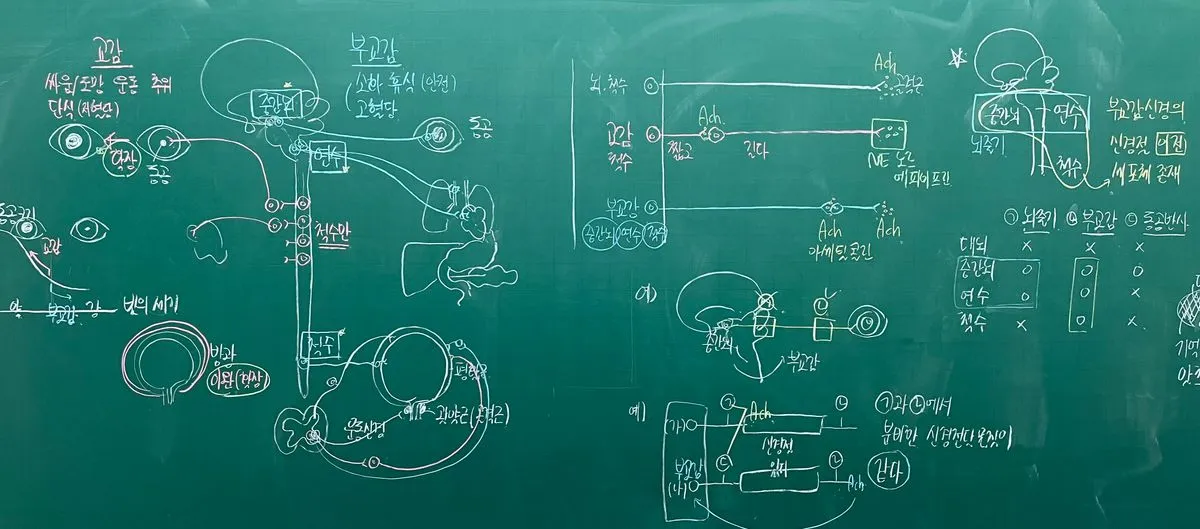 교감
싸움/도망 운동 추위
단식(저혈당)
확장
동공
교감
약
부교감
강
빛의 세기
방광
이완(확장)
부교감
소화 휴식(안전)
고혈당
중간뇌
연수
동공
척수만
척수
운동신경
괄약근(골격근)
뇌·척수
Ach
골격근
교감
척수
짧고
Ach
길다
NE 노르
에피네프린
부교감
중간뇌 연수 척수
Ach
Ach
아세틸콜린
중간뇌
연수
뇌줄기
척수
부교감신경의
신경절 이전
세포체 존재
㉠ 뇌줄기 ㉡ 부교감 ㉢ 동공반사
대뇌 × × ×
중간뇌 ○ ○ ○
연수 ○ ○ ×
척수 × ○ ×
예)
㉠
㉡
중간뇌
부교감
예)
(가)
㉠
Ach
㉡
신경절
부교감
(나)
㉢
㉡
Ach
㉠과 ㉡에서
분비된 신경전달물질이
같다